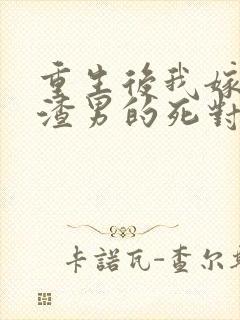 重生後我嫁
渣男的死對
卡諾瓦-查尔